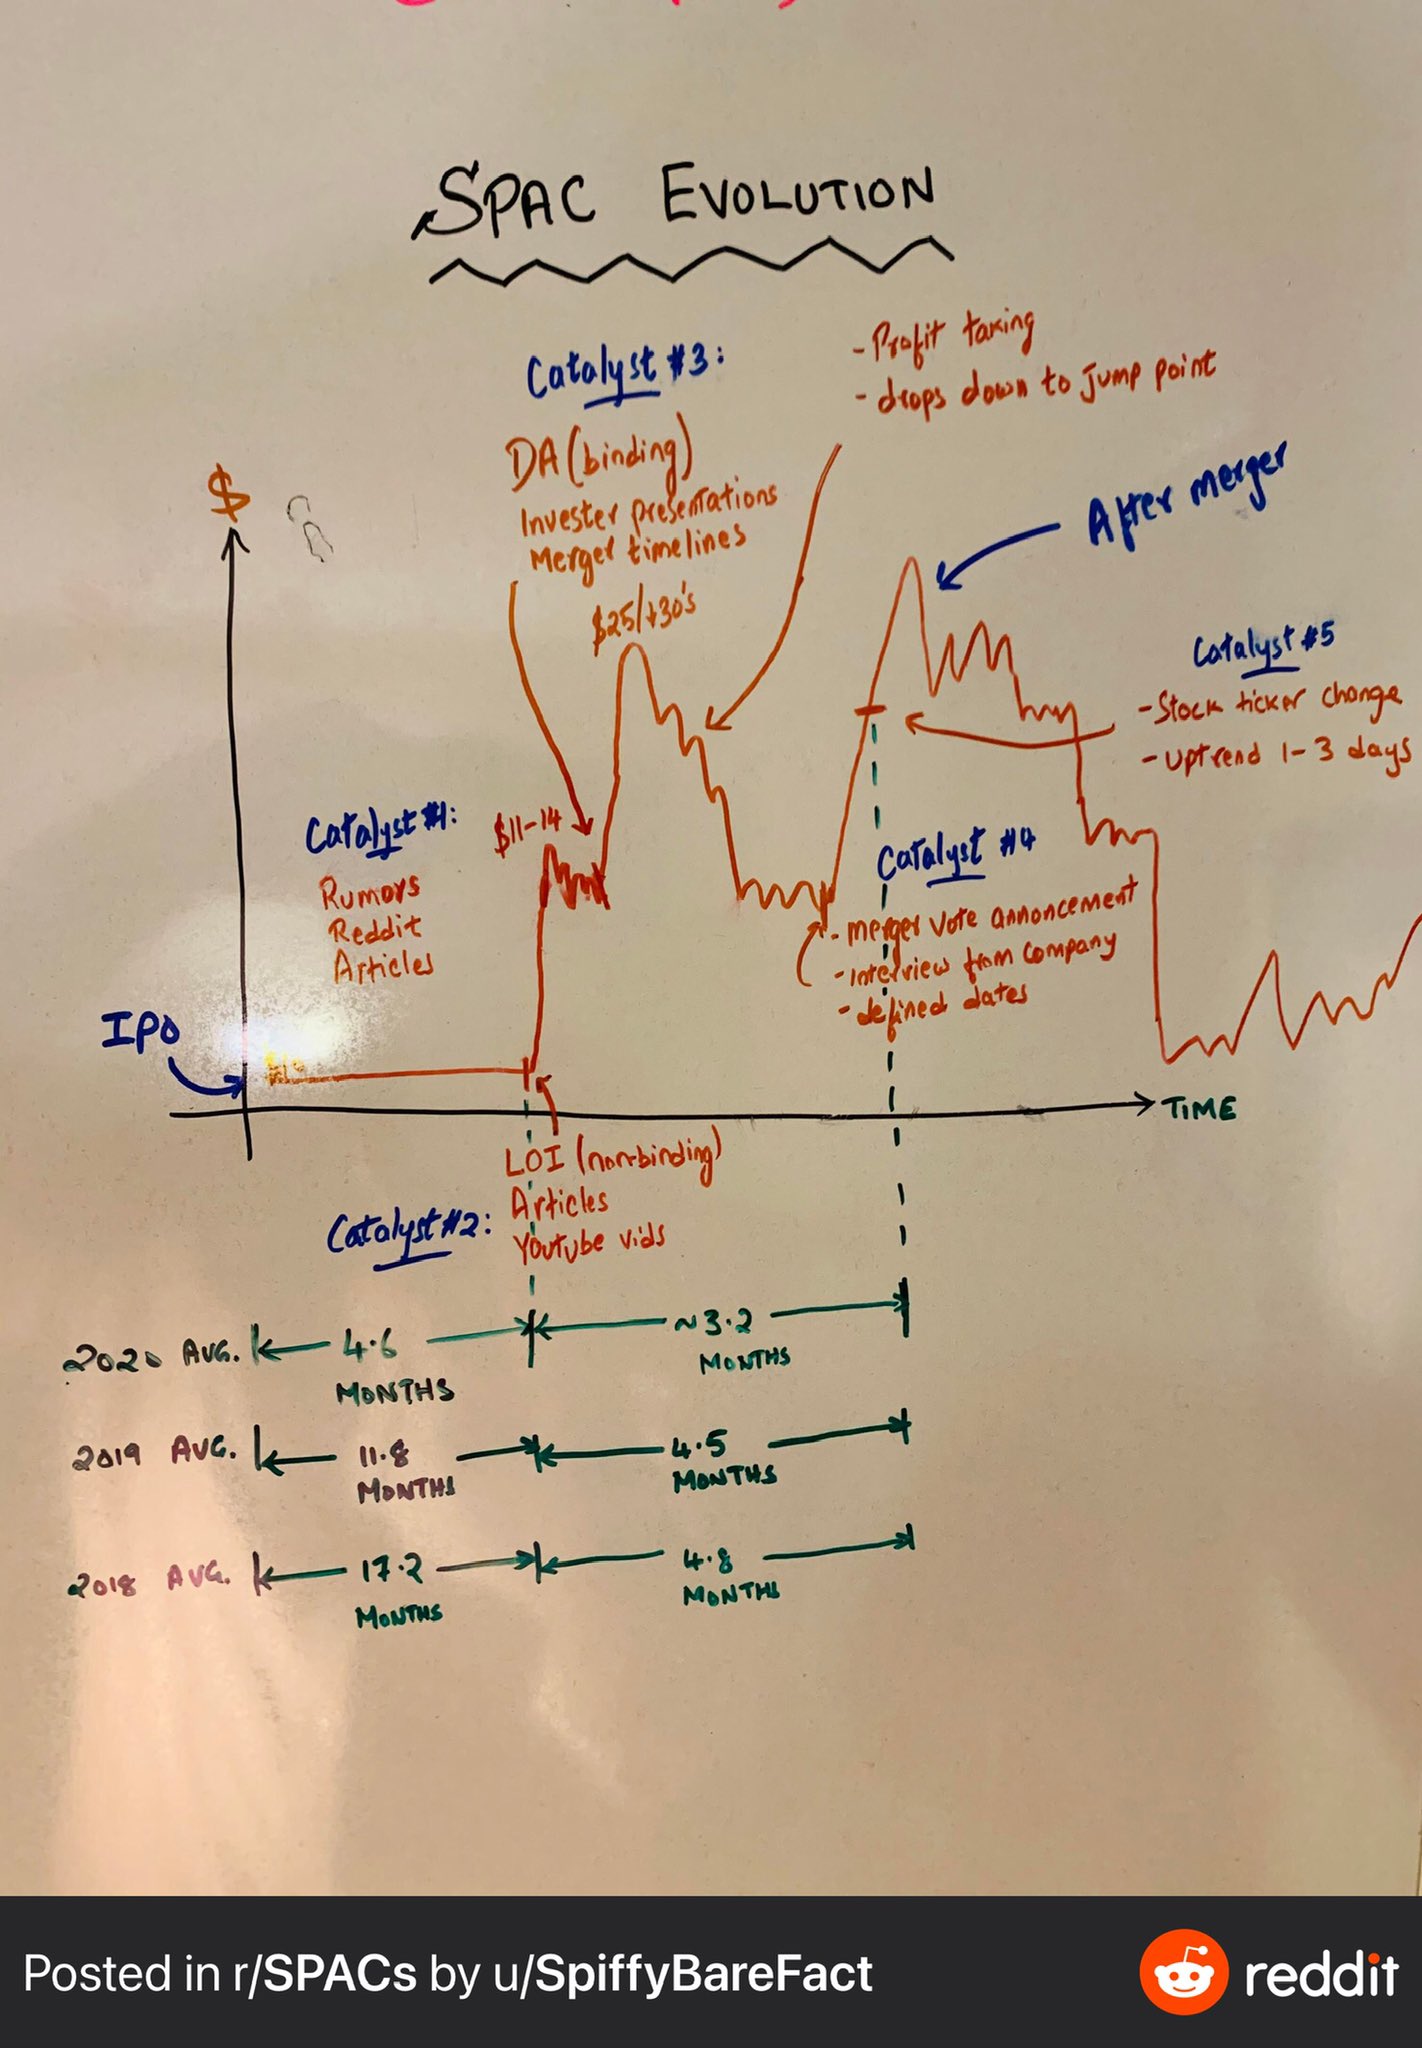 SPAC EVOLUTION
Catalyst #3:
DA (binding)
Invester presentations
Merger timelines
$25/+30's
- Profit taking
- drops down to Jump point
$
After merger
Catalyst #5
- Stock ticker change
- uptrend 1-3 days
Catalyst #1:
Rumors
Reddit
Articles
$11-14
Catalyst #4
- Merger vote annoncement
- interview from company
- defined dates
IPO
TIME
LOI (non-binding)
Articles
Youtube vids
Catalyst #2:
2020 AVG. 4.6 MONTHS ~3.2 MONTHS
2019 AVG. 11.8 MONTHS 4.5 MONTHS
2018 AVG. 17.2 MONTHS 4.8 MONTHS
Posted in r/SPACs by u/SpiffyBareFact
reddit